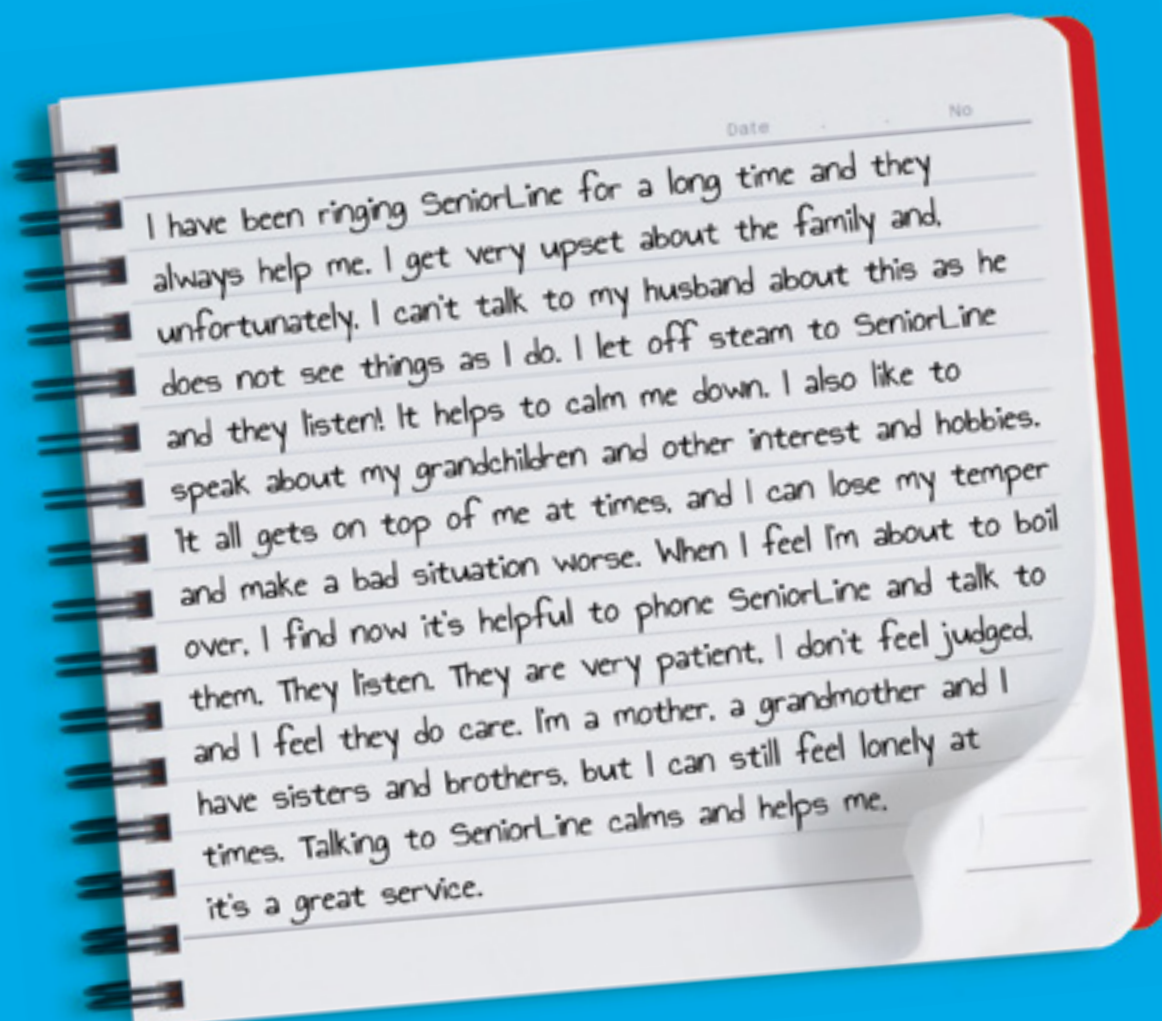 Date . . No
I have been ringing SeniorLine for a long time and they
always help me. I get very upset about the family and,
unfortunately. I can't talk to my husband about this as he
does not see things as I do. I let off steam to SeniorLine
and they listen! It helps to calm me down. I also like to
speak about my grandchildren and other interest and hobbies.
It all gets on top of me at times, and I can lose my temper
and make a bad situation worse. When I feel I'm about to boil
over, I find now it's helpful to phone SeniorLine and talk to
them. They listen. They are very patient. I don't feel judged,
and I feel they do care. I'm a mother, a grandmother and I
have sisters and brothers, but I can still feel lonely at
times. Talking to SeniorLine calms and helps me.
it's a great service.